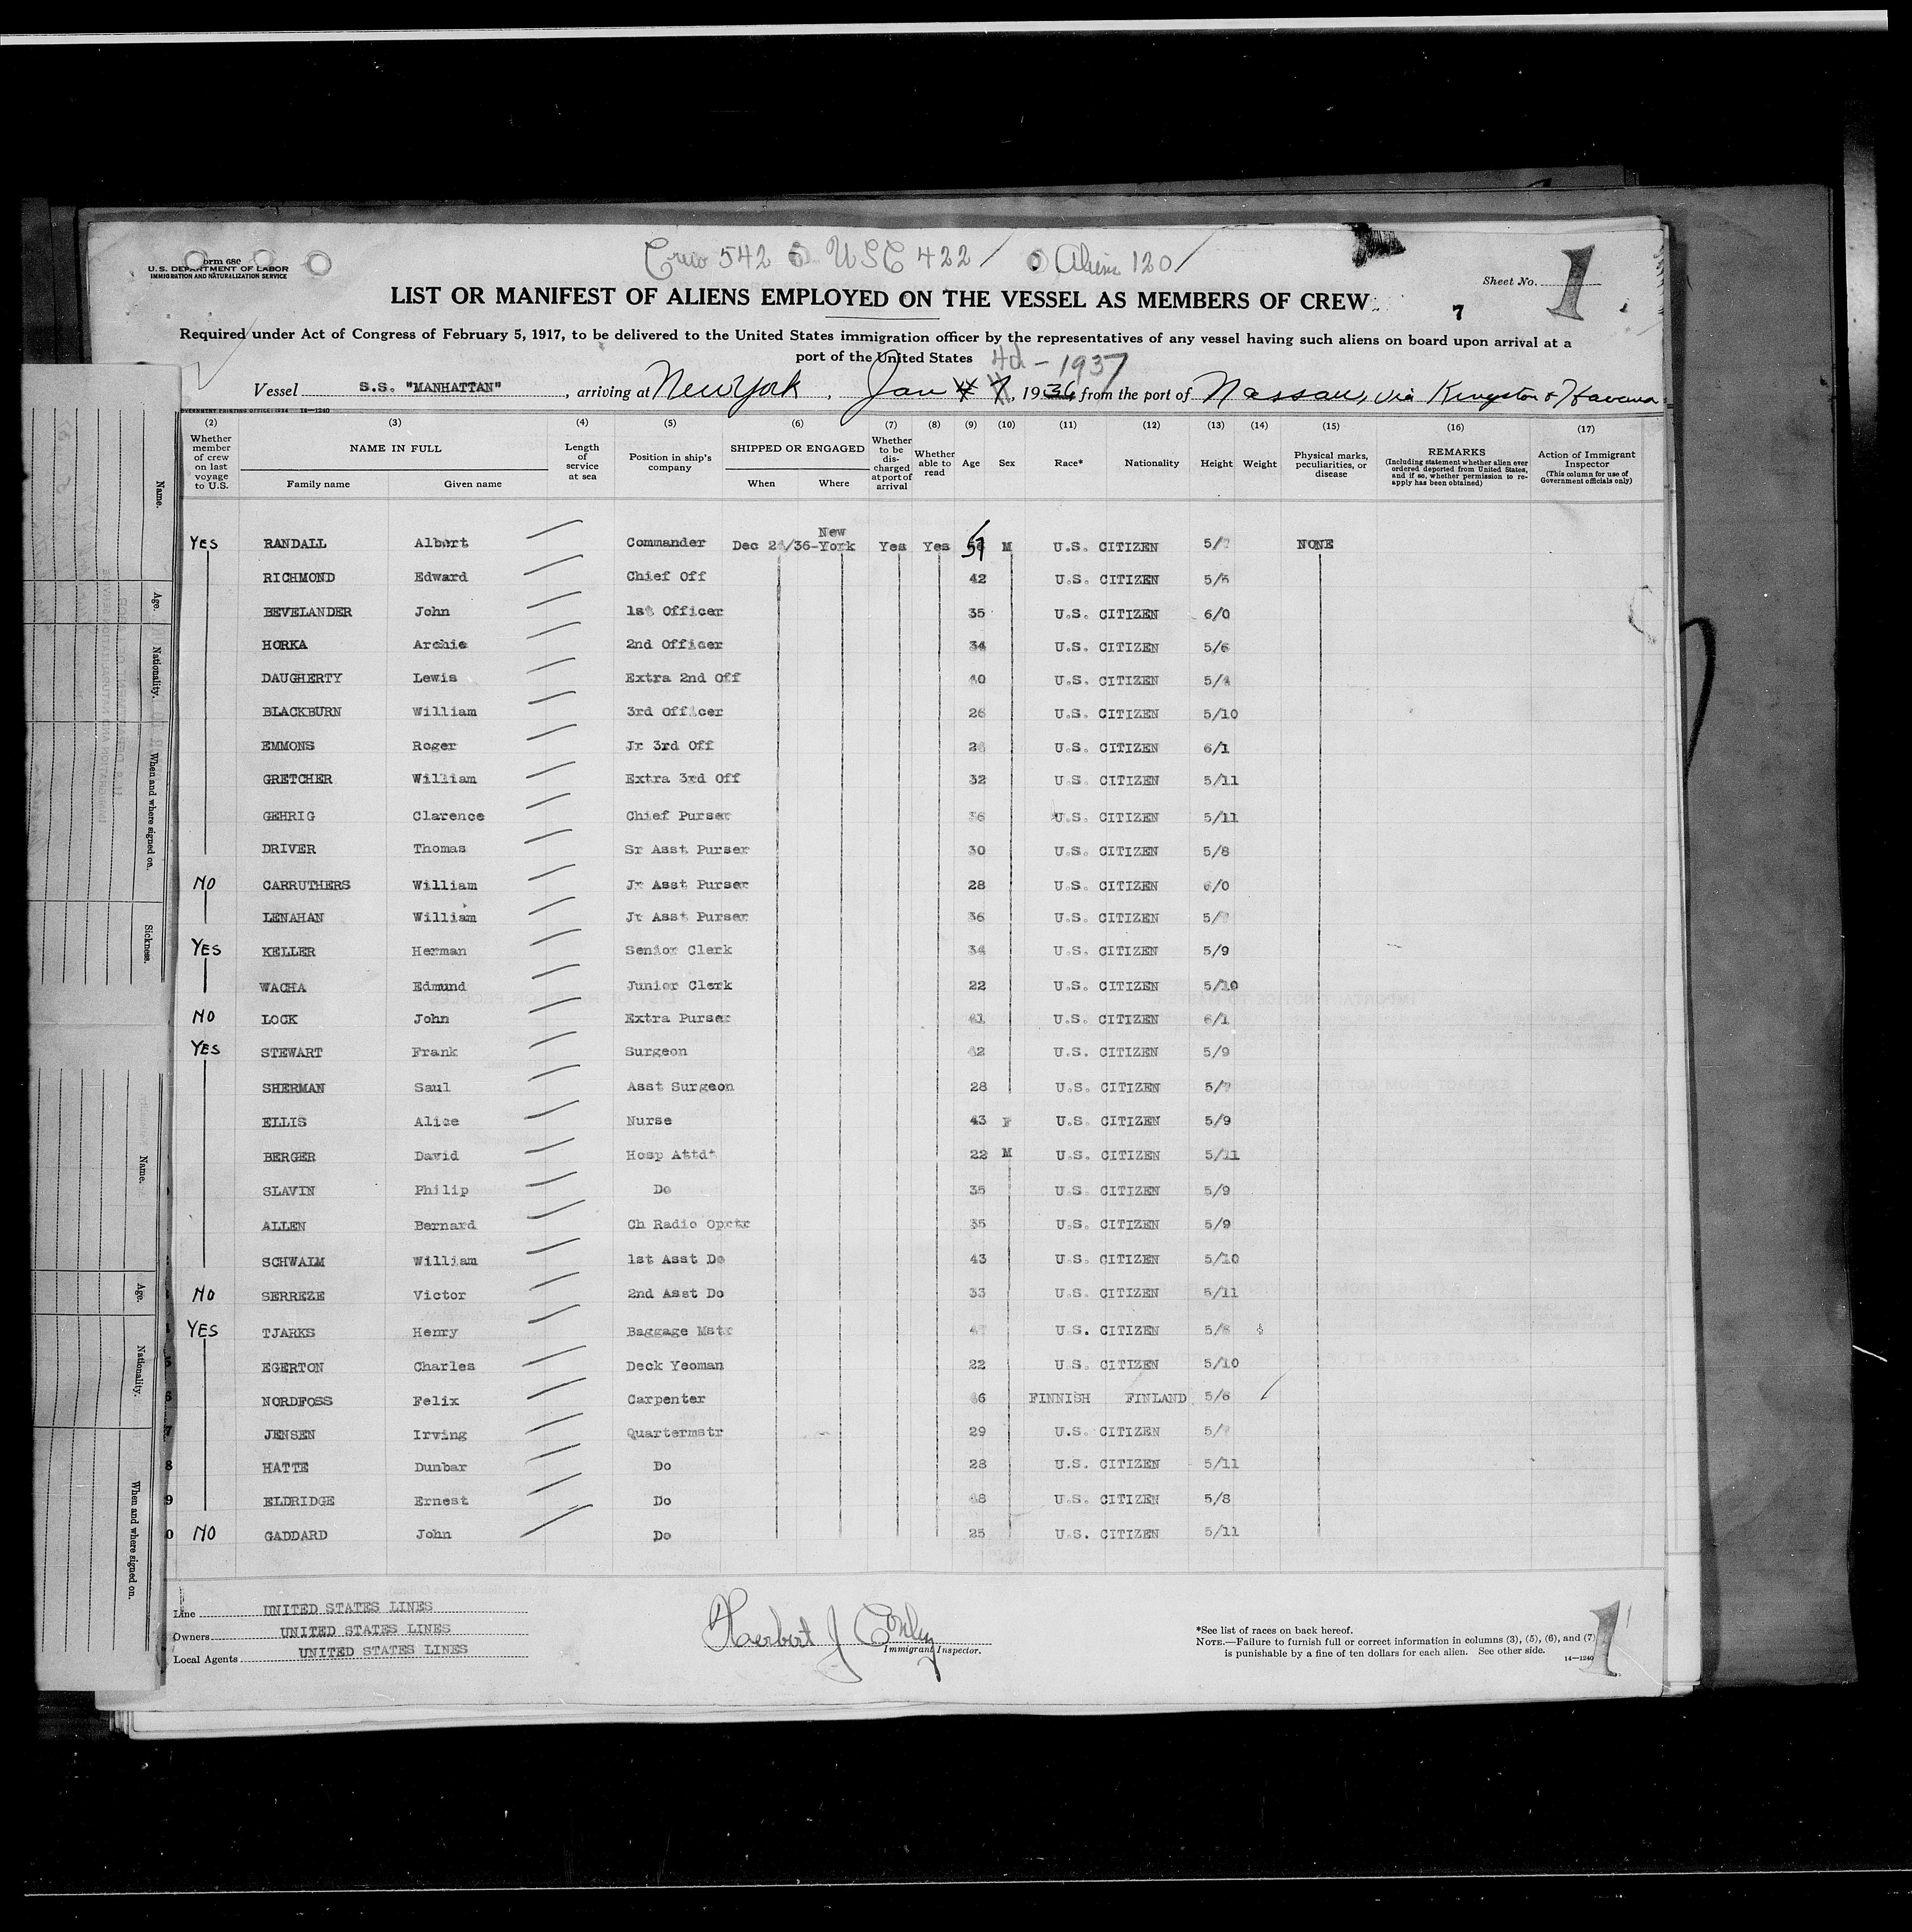 Crew 542 USC 422 / Aliens 120 /
Form 680
U.S. DEPARTMENT OF LABOR
IMMIGRATION AND NATURALIZATION SERVICE
Sheet No. 1
LIST OR MANIFEST OF ALIENS EMPLOYED ON THE VESSEL AS MEMBERS OF CREW
7
Required under Act of Congress of February 5, 1917, to be delivered to the United States immigration officer by the representatives of any vessel having such aliens on board upon arrival at a
port of the United States
4th - 1937
Vessel S.S. "MANHATTAN", arriving at New York, Jan, 1936, from the port of Nassau, via Kingston & Havana
GOVERNMENT PRINTING OFFICE: 1934 14—1240
(2) (3) (4) (5) (6) (7) (8) (9) (10) (11) (12) (13) (14) (15) (16) (17)
Whether member of crew on last voyage to U.S.
NAME IN FULL
Family name Given name
Length of service at sea
Position in ship's company
SHIPPED OR ENGAGED
When Where
Whether to be discharged at port of arrival
Whether able to read
Age Sex Race* Nationality Height Weight
Physical marks, peculiarities, or disease
REMARKS
(Including statement whether alien ever ordered deported from United States, and if so, whether permission to reapply has been obtained)
Action of Immigrant Inspector
(This column for use of Government officials only)
YES RANDALL Albert Commander Dec 2/36-New York Yes Yes M U.S. CITIZEN 5/ NONE
RICHMOND Edward Chief Off 42 U.S. CITIZEN 5/5
BEVELANDER John 1st Officer 35 U.S. CITIZEN 6/0
HORKA Archie 2nd Officer 34 U.S. CITIZEN 5/6
DAUGHERTY Lewis Extra 2nd Off 40 U.S. CITIZEN 5/4
BLACKBURN William 3rd Officer 26 U.S. CITIZEN 5/10
EMMONS Roger Jr 3rd Off U.S. CITIZEN 6/1
GRETCHER William Extra 3rd Off 32 U.S. CITIZEN 5/11
GEHRIG Clarence Chief Purser 36 U.S. CITIZEN 5/11
DRIVER Thomas Sr Asst Purser 30 U.S. CITIZEN 5/8
NO CARRUTHERS William Jr Asst Purser 28 U.S. CITIZEN 6/0
LENAHAN William Jr Asst Purser 36 U.S. CITIZEN 5/
YES KELLER Herman Senior Clerk 34 U.S. CITIZEN 5/9
WACHA Edmund Junior Clerk 22 U.S. CITIZEN 5/10
NO LOCK John Extra Purser 41 U.S. CITIZEN 6/1
YES STEWART Frank Surgeon 42 U.S. CITIZEN 5/9
SHERMAN Saul Asst Surgeon 28 U.S. CITIZEN 5/7
ELLIS Alice Nurse 43 F U.S. CITIZEN 5/9
BERGER David Hosp Attdt 22 M U.S. CITIZEN 5/11
SLAVIN Philip Do 35 U.S. CITIZEN 5/9
ALLEN Bernard Ch Radio Oprtr 35 U.S. CITIZEN 5/9
SCHWALM William 1st Asst Do 43 U.S. CITIZEN 5/10
NO SERREZE Victor 2nd Asst Do 33 U.S. CITIZEN 5/11
YES TJARKS Henry Baggage Mstr U.S. CITIZEN 5/8
EGERTON Charles Deck Yeoman 22 U.S. CITIZEN 5/10
NORDFOSS Felix Carpenter 46 FINNISH FINLAND 5/6
JENSEN Irving Quartermstr 29 U.S. CITIZEN 5/
HATTE Dunbar Do 28 U.S. CITIZEN 5/11
ELDRIDGE Ernest Do 48 U.S. CITIZEN 5/8
NO GADDARD John Do 25 U.S. CITIZEN 5/11
Line UNITED STATES LINES
Owners UNITED STATES LINES
Local Agents UNITED STATES LINES
Herbert J Conley
Immigrant Inspector.
*See list of races on back hereof.
NOTE.—Failure to furnish full or correct information in columns (3), (5), (6), and (7)
is punishable by a fine of ten dollars for each alien. See other side.
14—1240
1
Name.
Age.
Nationality.
When and where signed on.
Sickness.
Name.
Age.
Nationality.
When and where signed on.